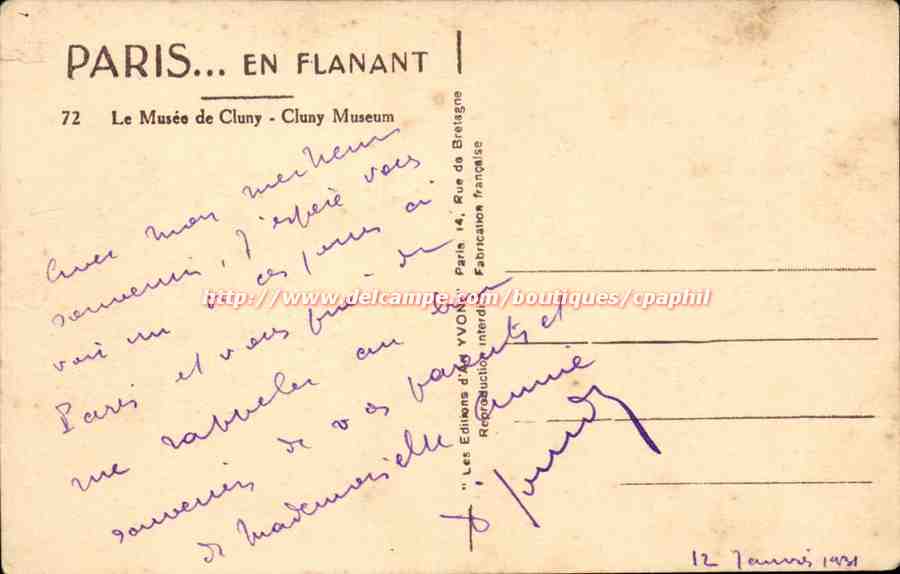 PARIS... EN FLANANT
72 Le Musée de Cluny - Cluny Museum
Avec mon meilleur
souvenir, j'espère vous
voir un de ces jours ici
Paris et vous prie de
me rappeler au bon
souvenir de vos parents et
de Mademoiselle Annie
12 Janvier 1931
"Les Editions d'Art YVON" Paris, 14, Rue de Bretagne
Reproduction interdite Fabrication française
http://www.delcampe.com/boutiques/cpaphil